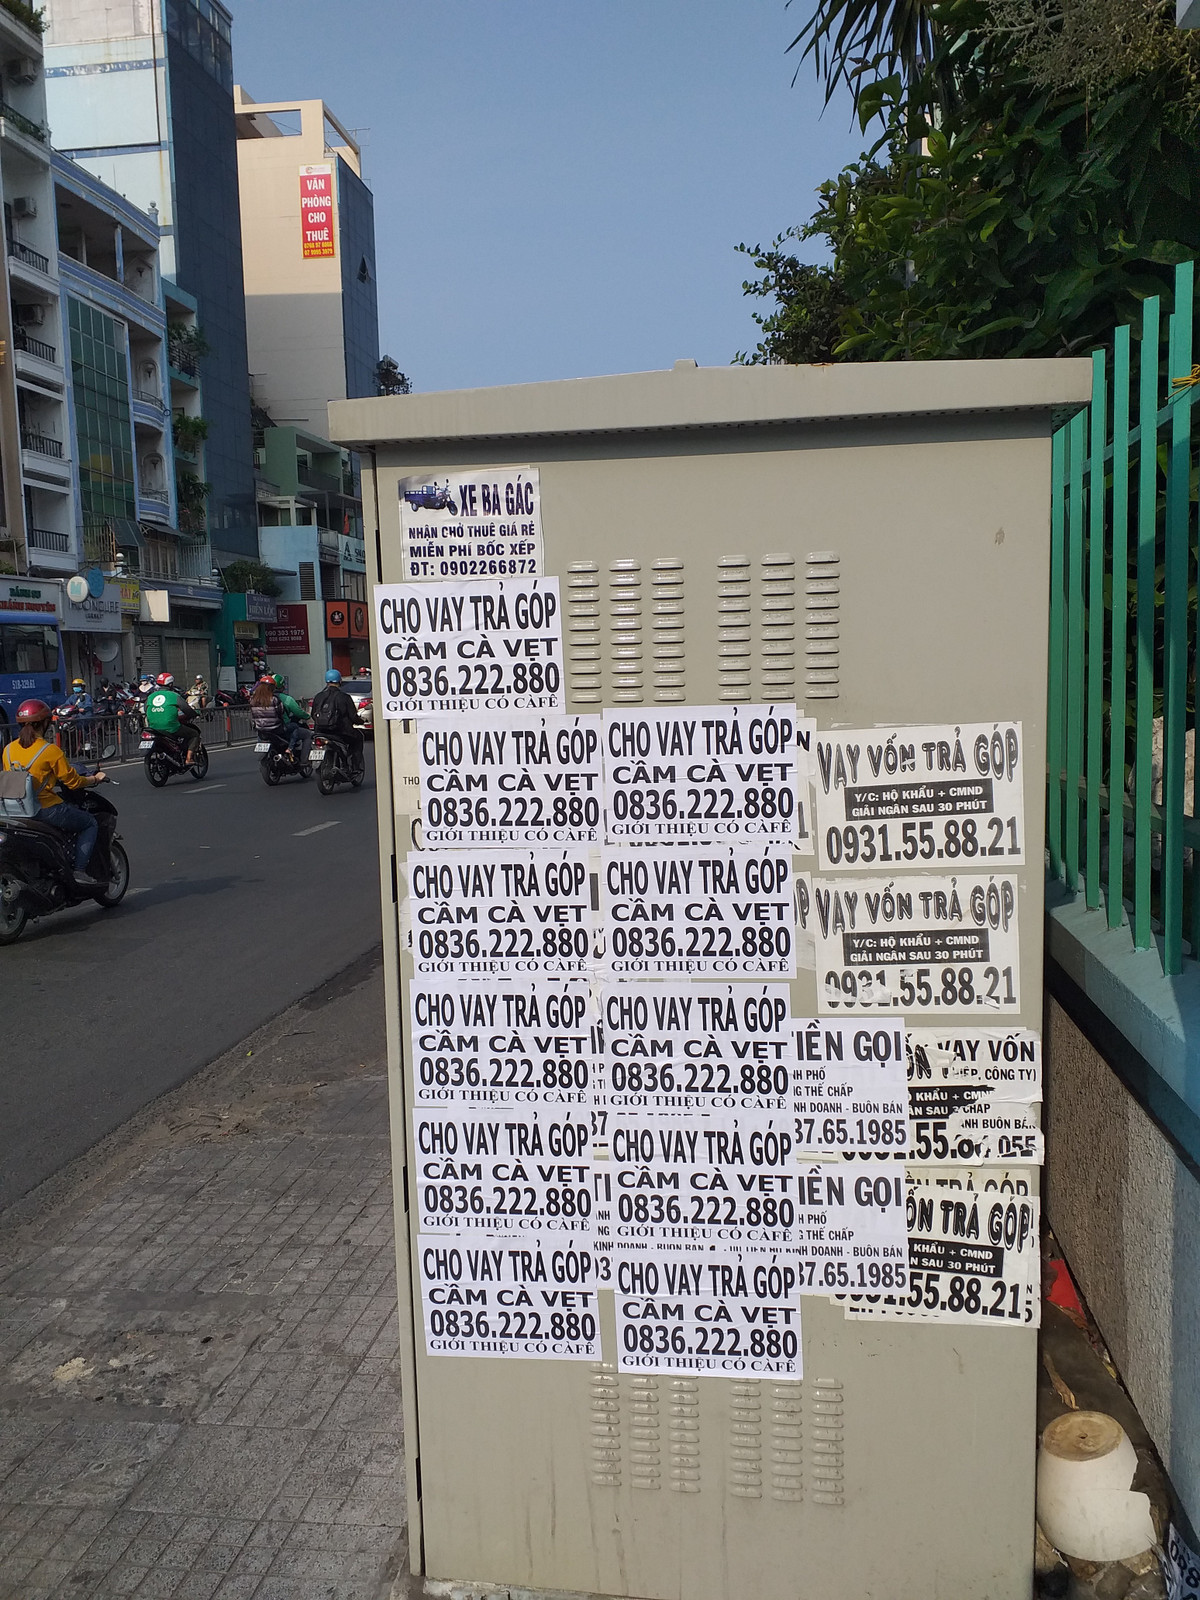 VĂN
PHÒNG
CHO
THUÊ
XE BA GÁC
NHẬN CHỞ THUÊ GIÁ RẺ
MIỄN PHÍ BỐC XẾP
ĐT: 0902266872
CHO VAY TRẢ GÓP
CẦM CÀ VẸT
0836.222.880
GIỚI THIỆU CÓ CÀFÊ
CHO VAY TRẢ GÓP
CẦM CÀ VẸT
0836.222.880
GIỚI THIỆU CÓ CÀFÊ
CHO VAY TRẢ GÓP
CẦM CÀ VẸT
0836.222.880
GIỚI THIỆU CÓ CÀFÊ
VAY VỐN TRẢ GÓP
Y/C: HỘ KHẨU + CMND
GIẢI NGÂN SAU 30 PHÚT
0931.55.88.21
CHO VAY TRẢ GÓP
CẦM CÀ VẸT
0836.222.880
GIỚI THIỆU CÓ CÀFÊ
CHO VAY TRẢ GÓP
CẦM CÀ VẸT
0836.222.880
GIỚI THIỆU CÓ CÀFÊ
VAY VỐN TRẢ GÓP
Y/C: HỘ KHẨU + CMND
GIẢI NGÂN SAU 30 PHÚT
0931.55.88.21
CHO VAY TRẢ GÓP
CẦM CÀ VẸT
0836.222.880
GIỚI THIỆU CÓ CÀFÊ
CHO VAY TRẢ GÓP
CẦM CÀ VẸT
0836.222.880
GIỚI THIỆU CÓ CÀFÊ
IỀN GỌI
NH PHỐ
G THẾ CHẤP
NH DOANH - BUÔN BÁN
37.65.1985
VAY VỐN
IỆP, CÔNG TY)
KHẨU + CMND
CHO VAY TRẢ GÓP
CẦM CÀ VẸT
0836.222.880
GIỚI THIỆU CÓ CÀFÊ
CHO VAY TRẢ GÓP
CẦM CÀ VẸT
0836.222.880
GIỚI THIỆU CÓ CÀFÊ
IỀN GỌI
H PHỐ
THẾ CHẤP
KINH DOANH - BUÔN BÁN
37.65.1985
ỐN TRẢ GÓP
KHẨU + CMND
ÂN SAU 30 PHÚT
55.88.21
CHO VAY TRẢ GÓP
CẦM CÀ VẸT
0836.222.880
GIỚI THIỆU CÓ CÀFÊ
CHO VAY TRẢ GÓP
CẦM CÀ VẸT
0836.222.880
GIỚI THIỆU CÓ CÀFÊ
Grab